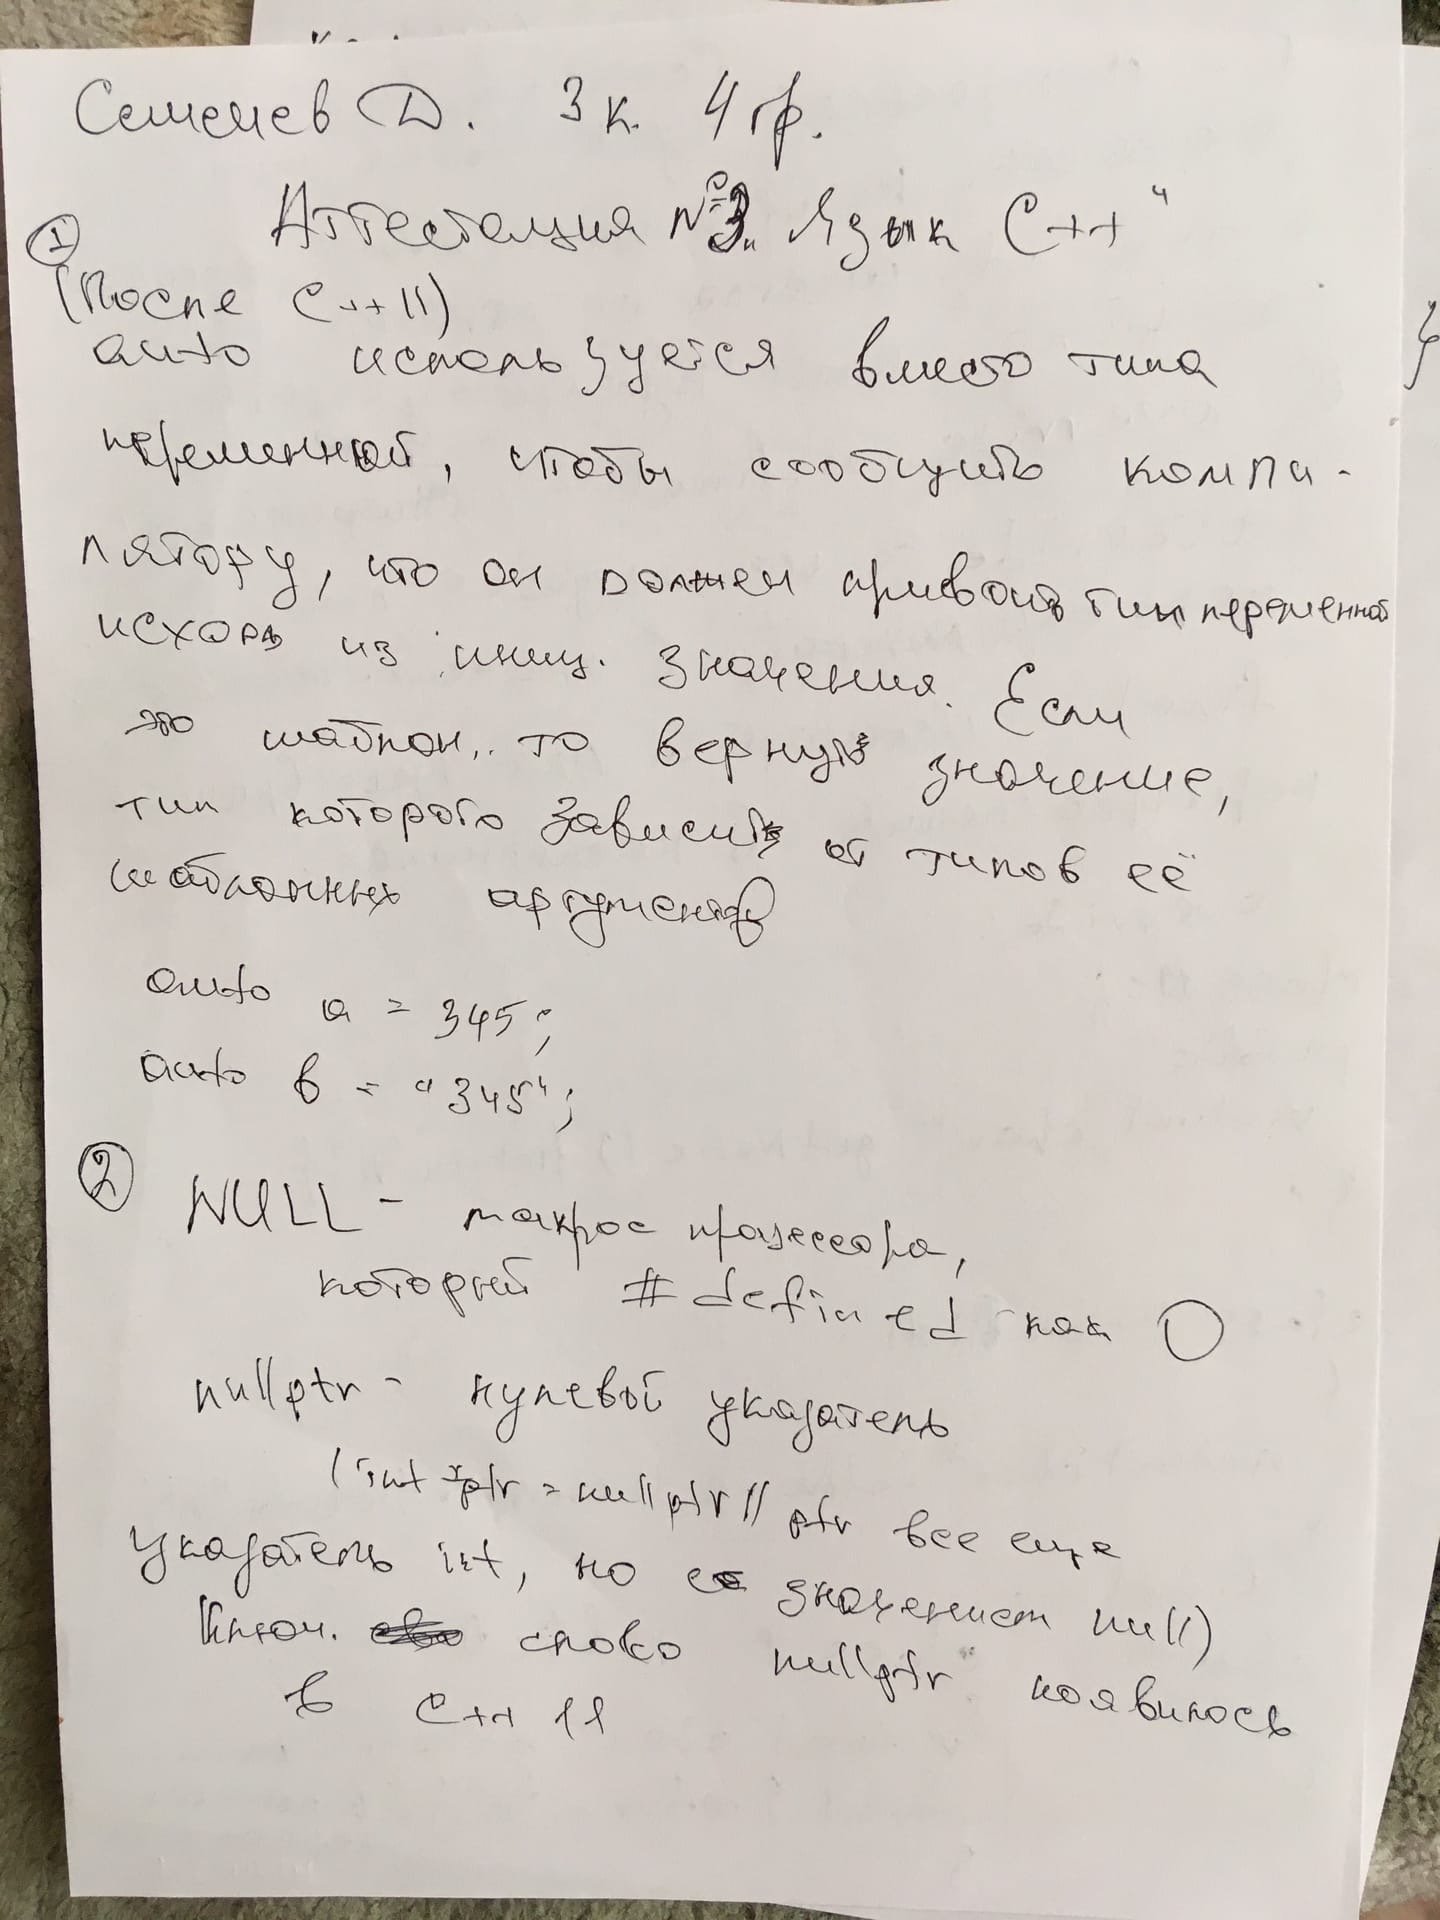 Семенев Д. 3 к. 4 гр.
Аттестация №3 „Язык C++“
①
(После C++11)
auto используется вместо типа
переменной, чтобы сообщить компи-
лятору, что он должен присвоить тип переменной
исходя из иниц. значения. Если
это шаблон, то вернуть значение,
тип которого зависит от типов её
шаблонных аргументов
auto a = 345;
auto b = "345";
② NULL - макрос процессора,
который #defined как 0
nullptr - нулевой указатель
(int *ptr = nullptr // ptr все еще
указатель int, но со значением null)
Ключ. слово nullptr появилось
в C++ 11